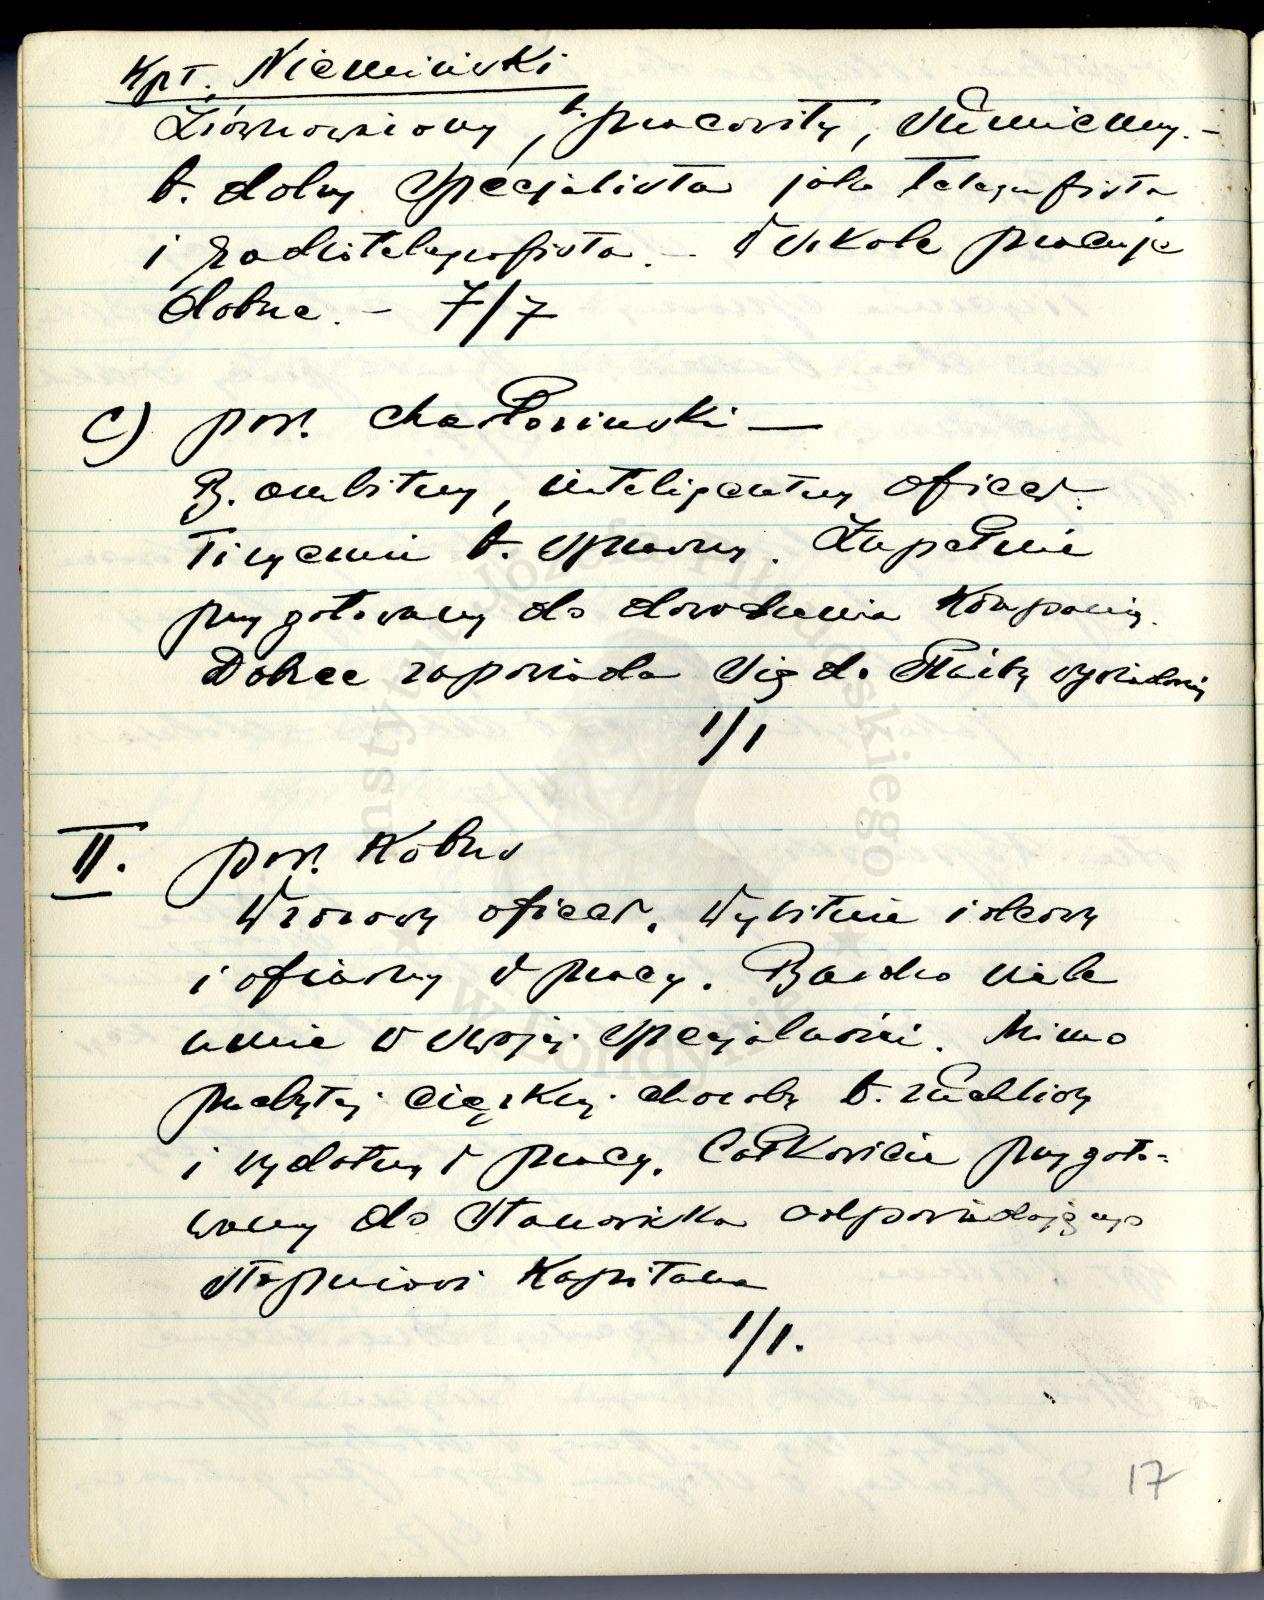 Kpt. Niemiński
Zrównoważony, b. pracowity, sumienny. –
b. dobry specjalista jako telegrafista
i radiotelegrafista. – W szkole pracuje
dobrze. – 7/7
c) por. Chałosiński —
B. ambitny, inteligentny oficer.
Fizycznie b. sprawny. Zupełnie
przygotowany do dowodzenia kompanią.
Dobrze zapowiada się do służby wywiadowczej
1/1
II. por. Kobus
Wzorowy oficer. Wybitnie ideowy
i ofiarny w pracy. Bardzo wiele
umie w swojej specjalności. Mimo
przebytej ciężkiej choroby b. ruchliwy
i wydatny w pracy. Całkowicie przygoto-
wany do stanowiska odpowiadającego
stopniowi kapitana
1/1.
17
Instytut Józefa Piłsudskiego
w Londynie